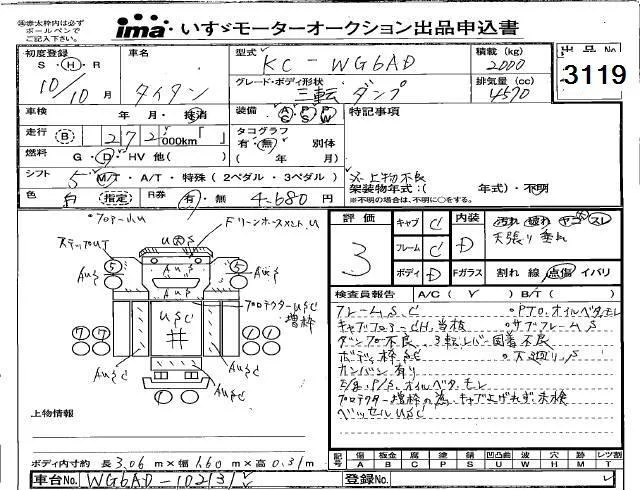 ※赤太枠内は必ず
ボールペンで
ご記入下さい。
ima いすゞモーターオークション出品申込書
初度登録 車名 型式 積載 (kg) 出品No
S・H・R KC-WG6AD 2000
グレード・ボディ形状 排気量 (cc) 3119
10/10月 タイタン 三転ダンプ 4570
車検 年・月・抹消 装備 AC PS PW 特記事項
走行 B 272,000km「 」 タコグラフ
有・無 別体
燃料 G・D・HV 他( ) ( 年 月)
シフト 5 M/T・A/T・特殊(2ペダル・3ペダル) 上物不良
架装物年式:( 年式)・不明
色 白 指定 R券 有・無 4,680円 ※不明の場合は、不明に○をする。
評価 キャブ C 内装 汚れ 破れ ヤニ スレ
3 フレーム C D 天張り
ボディ D Fガラス 割れ 線 点傷 イバリ
検査員報告 A/C( ) B/T( )
ステップUT
AUS AUS AUS
5 5
プロテクターUSC
USC 増枠
7 7 1 1
AUSC AUSC
フレームSC ・PTO.オイルベタモレ
・サブフレームS
ダンプ不良 3転レバー固着不良
ボディ枠SC ・下廻りS
カンバン有り
E/g.P/S.オイルベタモレ
プロテクター増枠の為、キャブ上げれず未検
ベッセルUSC
上物情報
ボディ内寸約 長3.06m×幅1.60m×高0.31m
記号 傷 板金 腐 塗 錆 凹凸曲 波 穴 跡 レツ割
A B C P S U W H M T
車台No. WG6AD-102131 登録No.